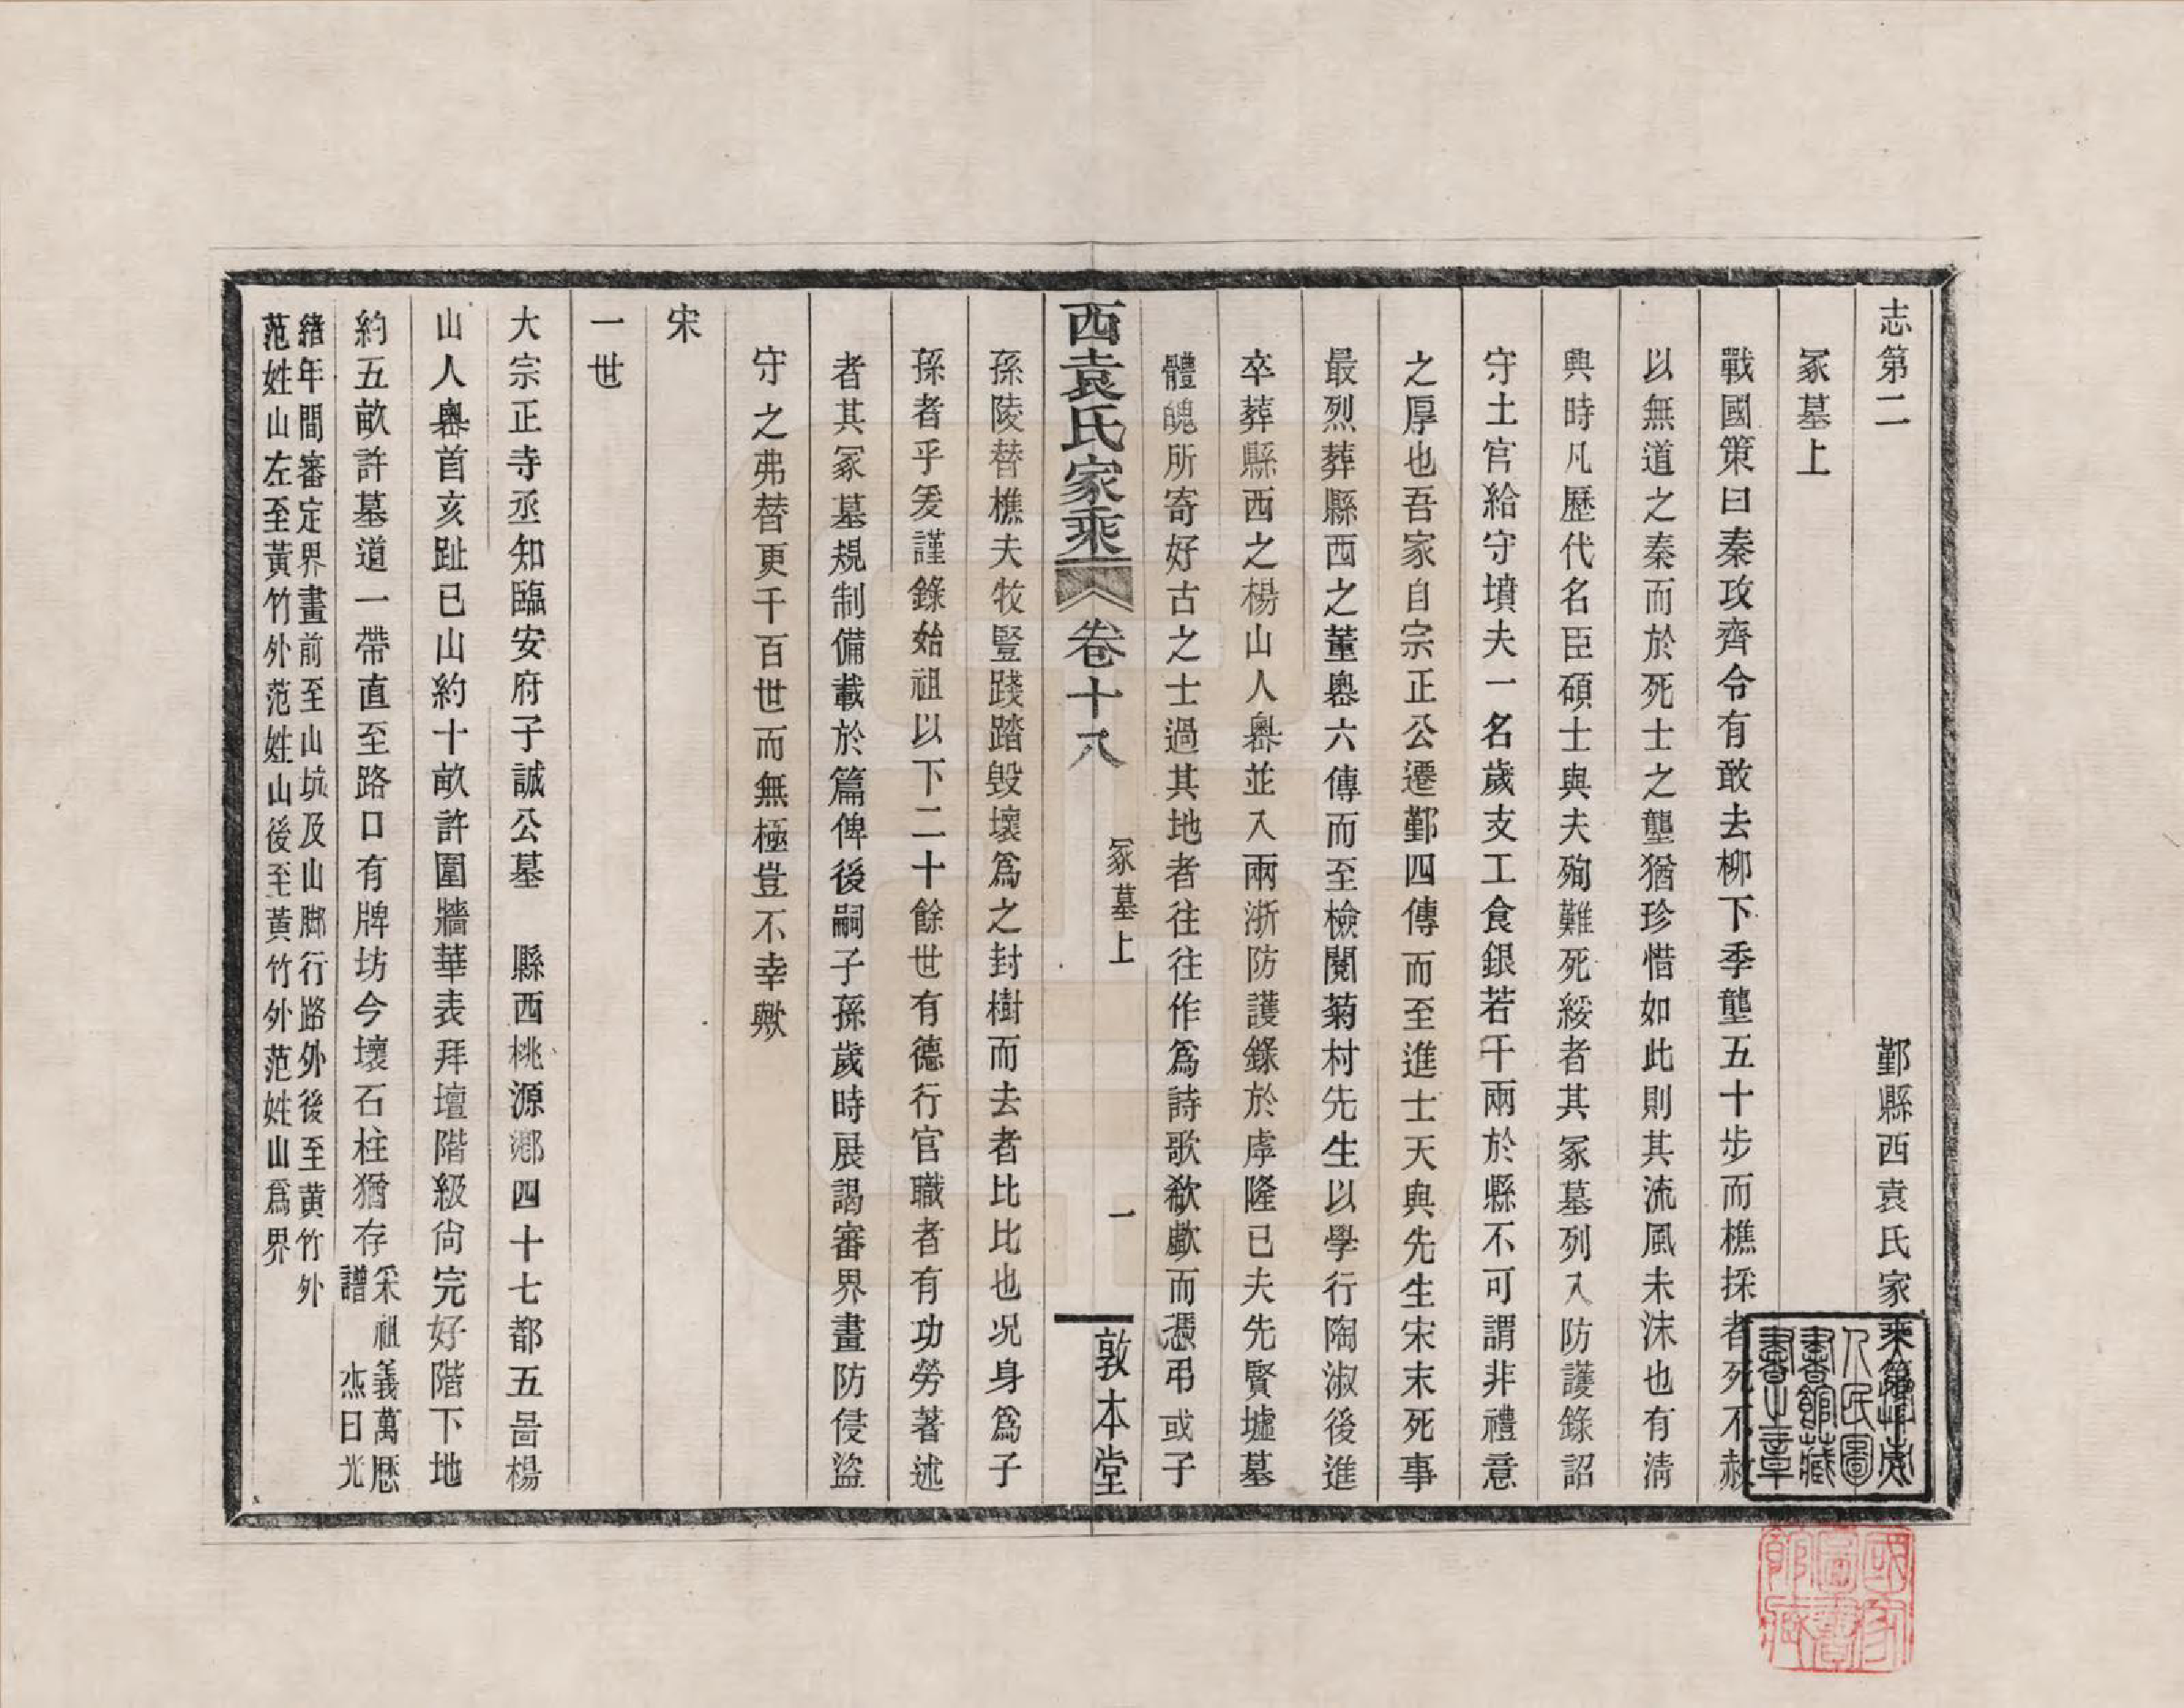 志第二　鄞縣西袁氏家乘第十八
冢墓上
戰國策曰秦攻齊令有敢去柳下季壟五十步而樵採者死不赦
以無道之秦而於死士之壟猶珍惜如此則其流風未沫也有淸
興時凡歷代名臣碩士與夫殉難死綏者其冢墓列入防護錄詔
守土官給守墳夫一名歲支工食銀若干兩於縣不可謂非禮意
之厚也吾家自宗正公遷鄞四傳而至進士天與先生宋末死事
最烈葬縣西之董嶴六傳而至檢閱菊村先生以學行陶淑後進
卒葬縣西之楊山人嶴並入兩浙防護錄於虖隆已夫先賢墟墓
體魄所寄好古之士過其地者往往作爲詩歌欷歔而憑弔或子
西袁氏家乘　卷十八　冢墓上　一　敦本堂
孫陵替樵夫牧豎踐踏毀壞爲之封樹而去者比比也況身爲子
孫者乎爰謹錄始祖以下二十餘世有德行官職者有功勞著述
者其冢墓規制備載於篇俾後嗣子孫歲時展謁審界畫防侵盜
守之弗替更千百世而無極豈不幸歟
宋
一世
大宗正寺丞知臨安府子誠公墓　縣西桃源鄉四十七都五啚楊
山人嶴首亥趾巳山約十畝許圍牆華表拜壇階級尙完好階下地
約五畝許墓道一帶直至路口有牌坊今壞石柱猶存采祖義萬厯
譜　杰日光
緒年間審定界畫前至山坑及山脚行路外後至黃竹外
范姓山左至黃竹外范姓山後至黃竹外范姓山爲界
人民圖
書館藏
書之章
國家
圖書
館藏